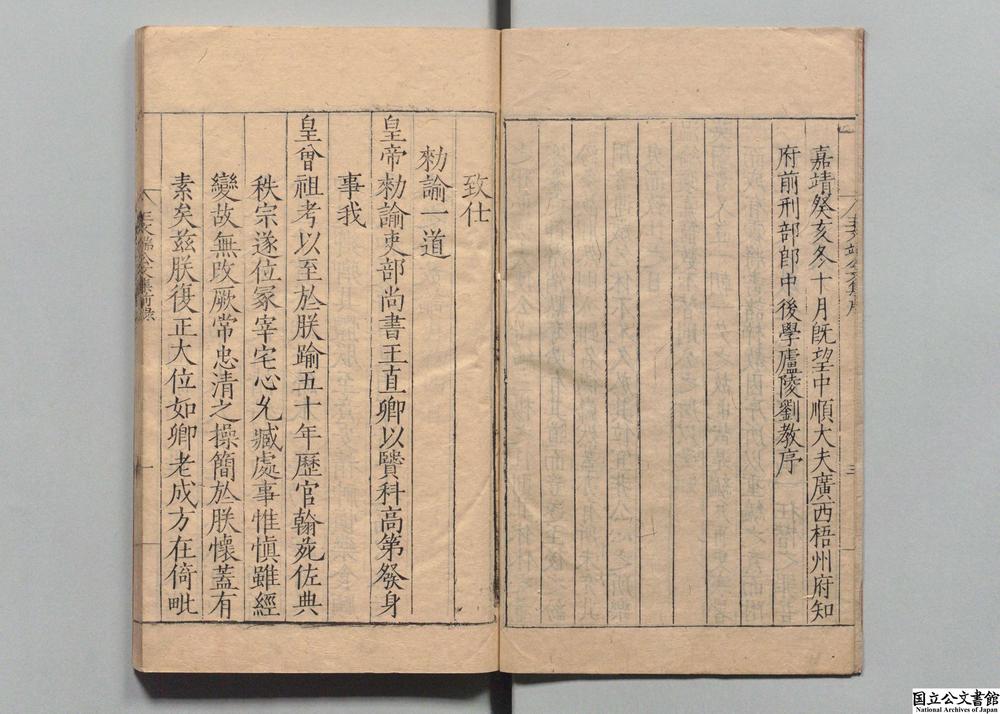 嘉靖癸亥冬十月旣望中順大夫廣西梧州府知
府前刑部郎中後學廬陵劉教序
致仕
勑諭一道
皇帝勑諭吏部尚書王直卿以賢科高第發身
事我
皇曾祖考以至於朕踰五十年歷官翰苑佐典
秩宗遂位冢宰宅心允臧處事惟慎雖經
變故無改厥常忠清之操簡於朕懷蓋有
素矣兹朕復正大位如卿老成方在倚毗
国立公文書館
National Archives of Japan